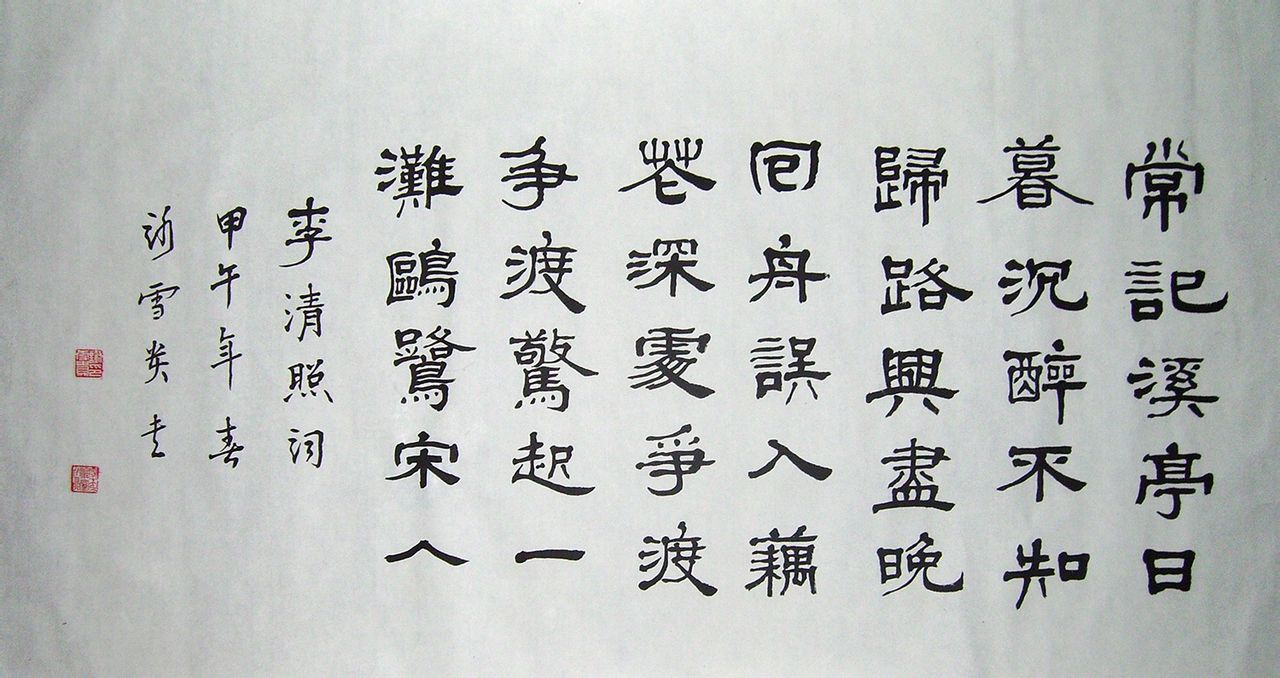 常記溪亭日
暮沉醉不知
歸路興盡晚
回舟誤入藕
花深處爭渡
争渡驚起一
灘鷗鷺宋人
李清照詞
甲午年春
雪炎书